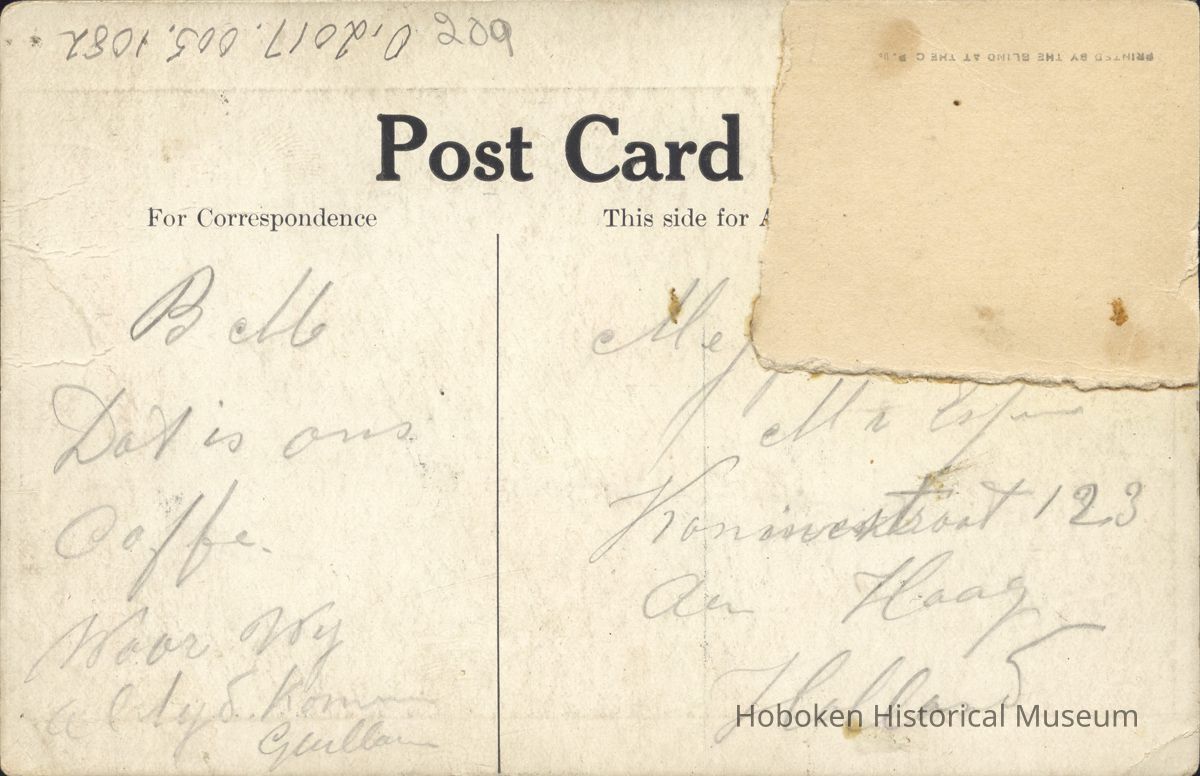 O,2017.005.1082 209
PRINTED BY THE BLIND AT THE C.P.B.
Post Card
For Correspondence
This side for A
B M
Dat is ons
Coffe.
Waar Wy
altyd Komen
Guillaum
Mej
Mr
Koninestraat 123
den Haag
Holland
Hoboken Historical Museum